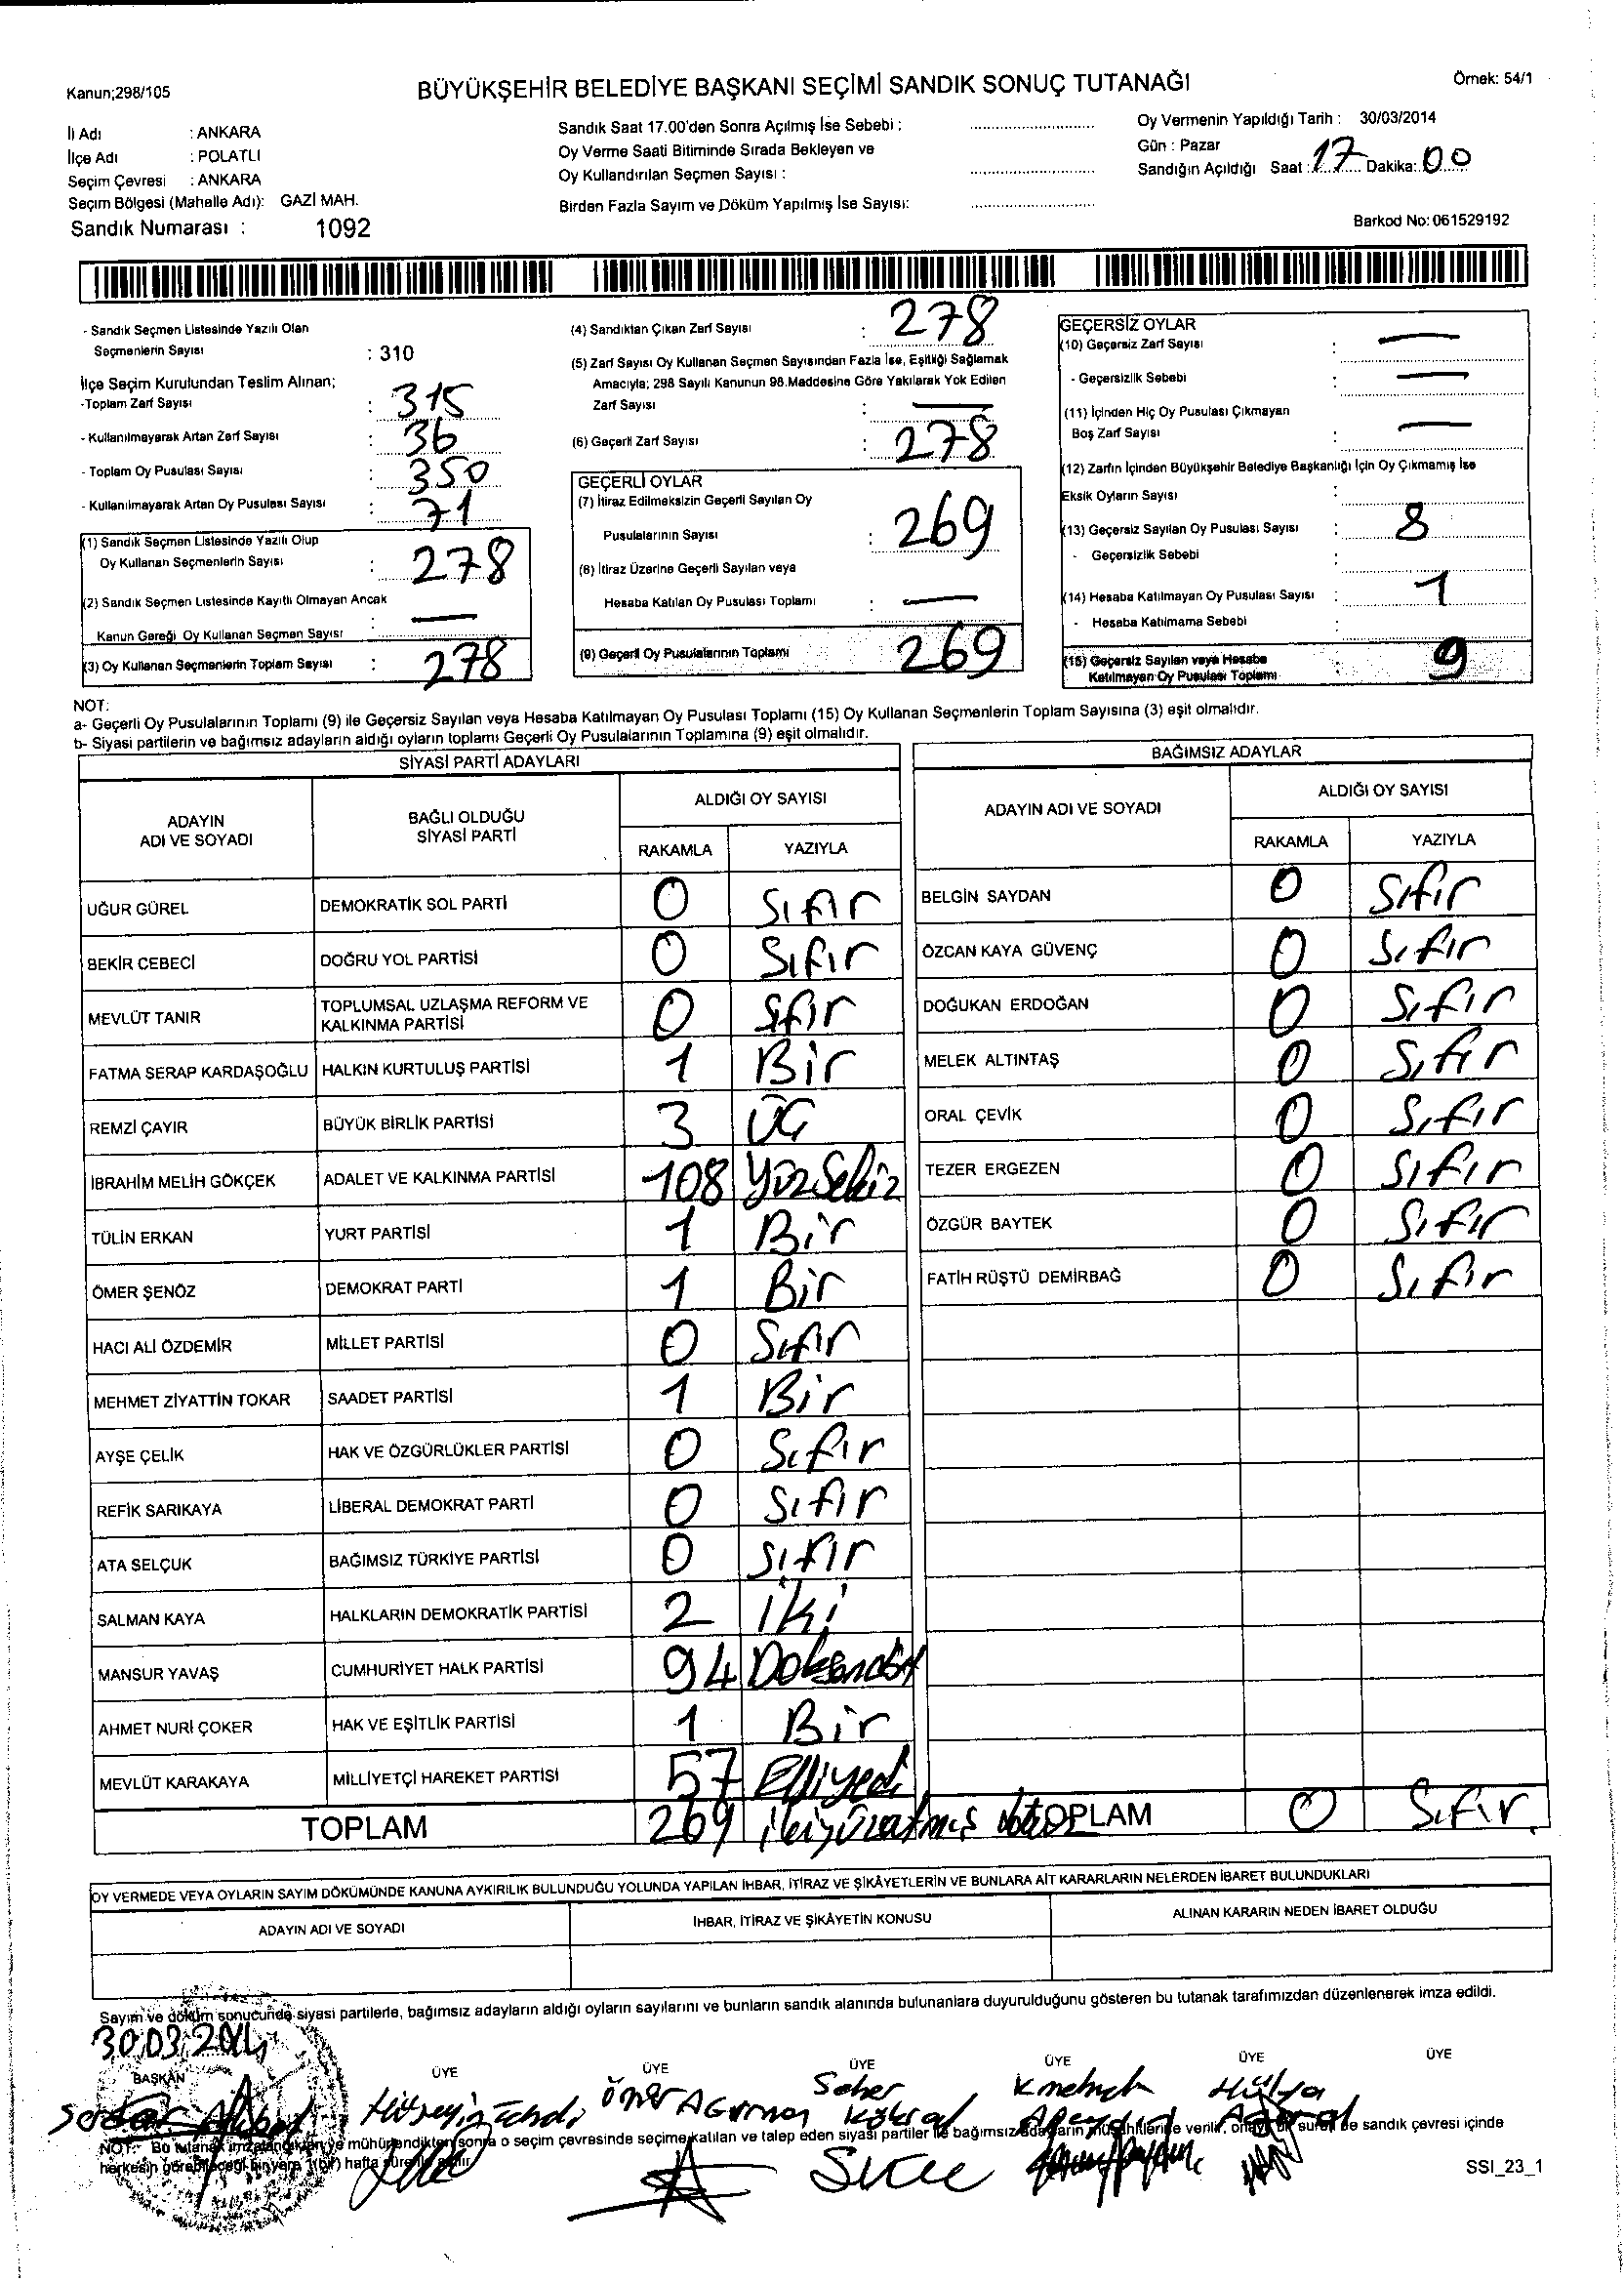 Kanun;298/105
BÜYÜKŞEHİR BELEDİYE BAŞKANI SEÇİMİ SANDIK SONUÇ TUTANAĞI
Örnek: 54/1
İli Adı : ANKARA
İlçe Adı : POLATLI
Seçim Çevresi : ANKARA
Seçim Bölgesi (Mahalle Adı): GAZİ MAH.
Sandık Numarası : 1092
Sandık Saat 17.00'den Sonra Açılmış İse Sebebi :
Oy Verme Saati Bitiminde Sırada Bekleyen ve
Oy Kullandırılan Seçmen Sayısı :
Birden Fazla Sayım ve Döküm Yapılmış İse Sayısı:
Oy Vermenin Yapıldığı Tarih : 30/03/2014
Gün : Pazar
Sandığın Açıldığı Saat : 17 Dakika: 00
Barkod No: 061529192
- Sandık Seçmen Listesinde Yazılı Olan
Seçmenlerin Sayısı : 310
İlçe Seçim Kurulundan Teslim Alınan;
-Toplam Zarf Sayısı : 315
- Kullanılmayarak Artan Zarf Sayısı : 36
- Toplam Oy Pusulası Sayısı : 350
- Kullanılmayarak Artan Oy Pusulası Sayısı : 71
(1) Sandık Seçmen Listesinde Yazılı Olup
Oy Kullanan Seçmenlerin Sayısı : 278
(2) Sandık Seçmen Listesinde Kayıtlı Olmayan Ancak
Kanun Gereği Oy Kullanan Seçmen Sayısı : —
(3) Oy Kullanan Seçmenlerin Toplam Sayısı : 278
(4) Sandıktan Çıkan Zarf Sayısı : 278
(5) Zarf Sayısı Oy Kullanan Seçmen Sayısından Fazla İse, Eşitliği Sağlamak
Amacıyla; 298 Sayılı Kanunun 98.Maddesine Göre Yakılarak Yok Edilen
Zarf Sayısı : —
(6) Geçerli Zarf Sayısı : 278
GEÇERLİ OYLAR
(7) İtiraz Edilmeksizin Geçerli Sayılan Oy
Pusulalarının Sayısı : 269
(8) İtiraz Üzerine Geçerli Sayılan veya
Hesaba Katılan Oy Pusulası Toplamı : —
(9) Geçerli Oy Pusulalarının Toplamı : 269
GEÇERSİZ OYLAR
(10) Geçersiz Zarf Sayısı : —
- Geçersizlik Sebebi : —
(11) İçinden Hiç Oy Pusulası Çıkmayan
Boş Zarf Sayısı : —
(12) Zarfın İçinden Büyükşehir Belediye Başkanlığı İçin Oy Çıkmamış İse
Eksik Oyların Sayısı :
(13) Geçersiz Sayılan Oy Pusulası Sayısı : 8
- Geçersizlik Sebebi :
(14) Hesaba Katılmayan Oy Pusulası Sayısı : 1
- Hesaba Katılmama Sebebi :
(15) Geçersiz Sayılan veya Hesaba
Katılmayan Oy Pusulası Toplamı : 9
NOT:
a- Geçerli Oy Pusulalarının Toplamı (9) ile Geçersiz Sayılan veya Hesaba Katılmayan Oy Pusulası Toplamı (15) Oy Kullanan Seçmenlerin Toplam Sayısına (3) eşit olmalıdır.
b- Siyasi partilerin ve bağımsız adayların aldığı oyların toplamı Geçerli Oy Pusulalarının Toplamına (9) eşit olmalıdır.
SİYASİ PARTİ ADAYLARI
ADAYIN ADI VE SOYADI BAĞLI OLDUĞU SİYASİ PARTİ ALDIĞI OY SAYISI
RAKAMLA YAZIYLA
UĞUR GÜREL DEMOKRATİK SOL PARTİ 0 Sıfır
BEKİR CEBECİ DOĞRU YOL PARTİSİ 0 Sıfır
MEVLÜT TANIR TOPLUMSAL UZLAŞMA REFORM VE KALKINMA PARTİSİ 0 Sfır
FATMA SERAP KARDAŞOĞLU HALKIN KURTULUŞ PARTİSİ 1 Bir
REMZİ ÇAYIR BÜYÜK BİRLİK PARTİSİ 3 ÜÇ
İBRAHİM MELİH GÖKÇEK ADALET VE KALKINMA PARTİSİ 108 Yüzsekiz
TÜLİN ERKAN YURT PARTİSİ 1 Bir
ÖMER ŞENÖZ DEMOKRAT PARTİ 1 Bir
HACI ALİ ÖZDEMİR MİLLET PARTİSİ 0 Sıfır
MEHMET ZİYATTİN TOKAR SAADET PARTİSİ 1 Bir
AYŞE ÇELİK HAK VE ÖZGÜRLÜKLER PARTİSİ 0 Sıfır
REFİK SARIKAYA LİBERAL DEMOKRAT PARTİ 0 Sıfır
ATA SELÇUK BAĞIMSIZ TÜRKİYE PARTİSİ 0 Sıfır
SALMAN KAYA HALKLARIN DEMOKRATİK PARTİSİ 2 iki
MANSUR YAVAŞ CUMHURİYET HALK PARTİSİ 94 Doksandört
AHMET NURİ ÇOKER HAK VE EŞİTLİK PARTİSİ 1 Bir
MEVLÜT KARAKAYA MİLLİYETÇİ HAREKET PARTİSİ 57 Elliyedi
TOPLAM 269 ikiyüzatmış
BAĞIMSIZ ADAYLAR
ADAYIN ADI VE SOYADI ALDIĞI OY SAYISI
RAKAMLA YAZIYLA
BELGİN SAYDAN 0 Sıfır
ÖZCAN KAYA GÜVENÇ 0 Sıfır
DOĞUKAN ERDOĞAN 0 Sıfır
MELEK ALTINTAŞ 0 Sıfır
ORAL ÇEVİK 0 Sıfır
TEZER ERGEZEN 0 Sıfır
ÖZGÜR BAYTEK 0 Sıfır
FATİH RÜŞTÜ DEMİRBAĞ 0 Sıfır
TOPLAM 0 Sıfır
OY VERMEDE VEYA OYLARIN SAYIM DÖKÜMÜNDE KANUNA AYKIRILIK BULUNDUĞU YOLUNDA YAPILAN İHBAR, İTİRAZ VE ŞİKÂYETLERİN VE BUNLARA AİT KARARLARIN NELERDEN İBARET BULUNDUKLARI
ADAYIN ADI VE SOYADI İHBAR, İTİRAZ VE ŞİKÂYETİN KONUSU ALINAN KARARIN NEDEN İBARET OLDUĞU
Sayım ve döküm sonucunda siyasi partilerle, bağımsız adayların aldığı oyların sayılarını ve bunların sandık alanında bulunanlara duyurulduğunu gösteren bu tutanak tarafımızdan düzenlenerek imza edildi.
30.03.2014
BAŞKAN ÜYE ÜYE ÜYE ÜYE ÜYE ÜYE
Serdar Hüseyin Ömer Seher Hülya
NOT:- Bu tutanak mühürlendikten sonra o seçim çevresinde seçime katılan ve talep eden siyasi partiler ile bağımsız verilir, sandık çevresi içinde
herkesin görebileceği bir yere 1(bir) hafta
SSI_23_1